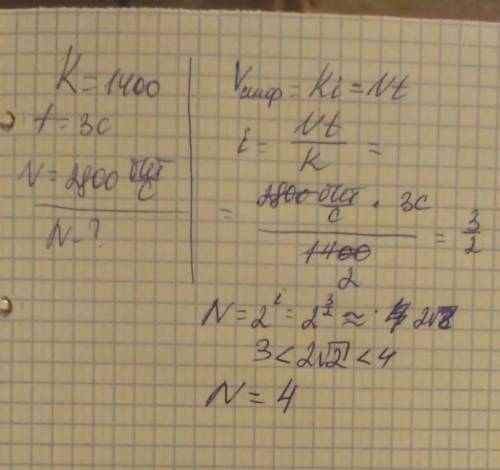 K = 1400
t = 3c
V = 2800 бит/с
N - ?
Vинф = Ki = Vt
i = Vt/K =
= 2800 бит/с · 3с / 1400 = 3/2
2
N = 2^i = 2^(3/2) ≈ 2√2
3 < 2√2 < 4
N = 4